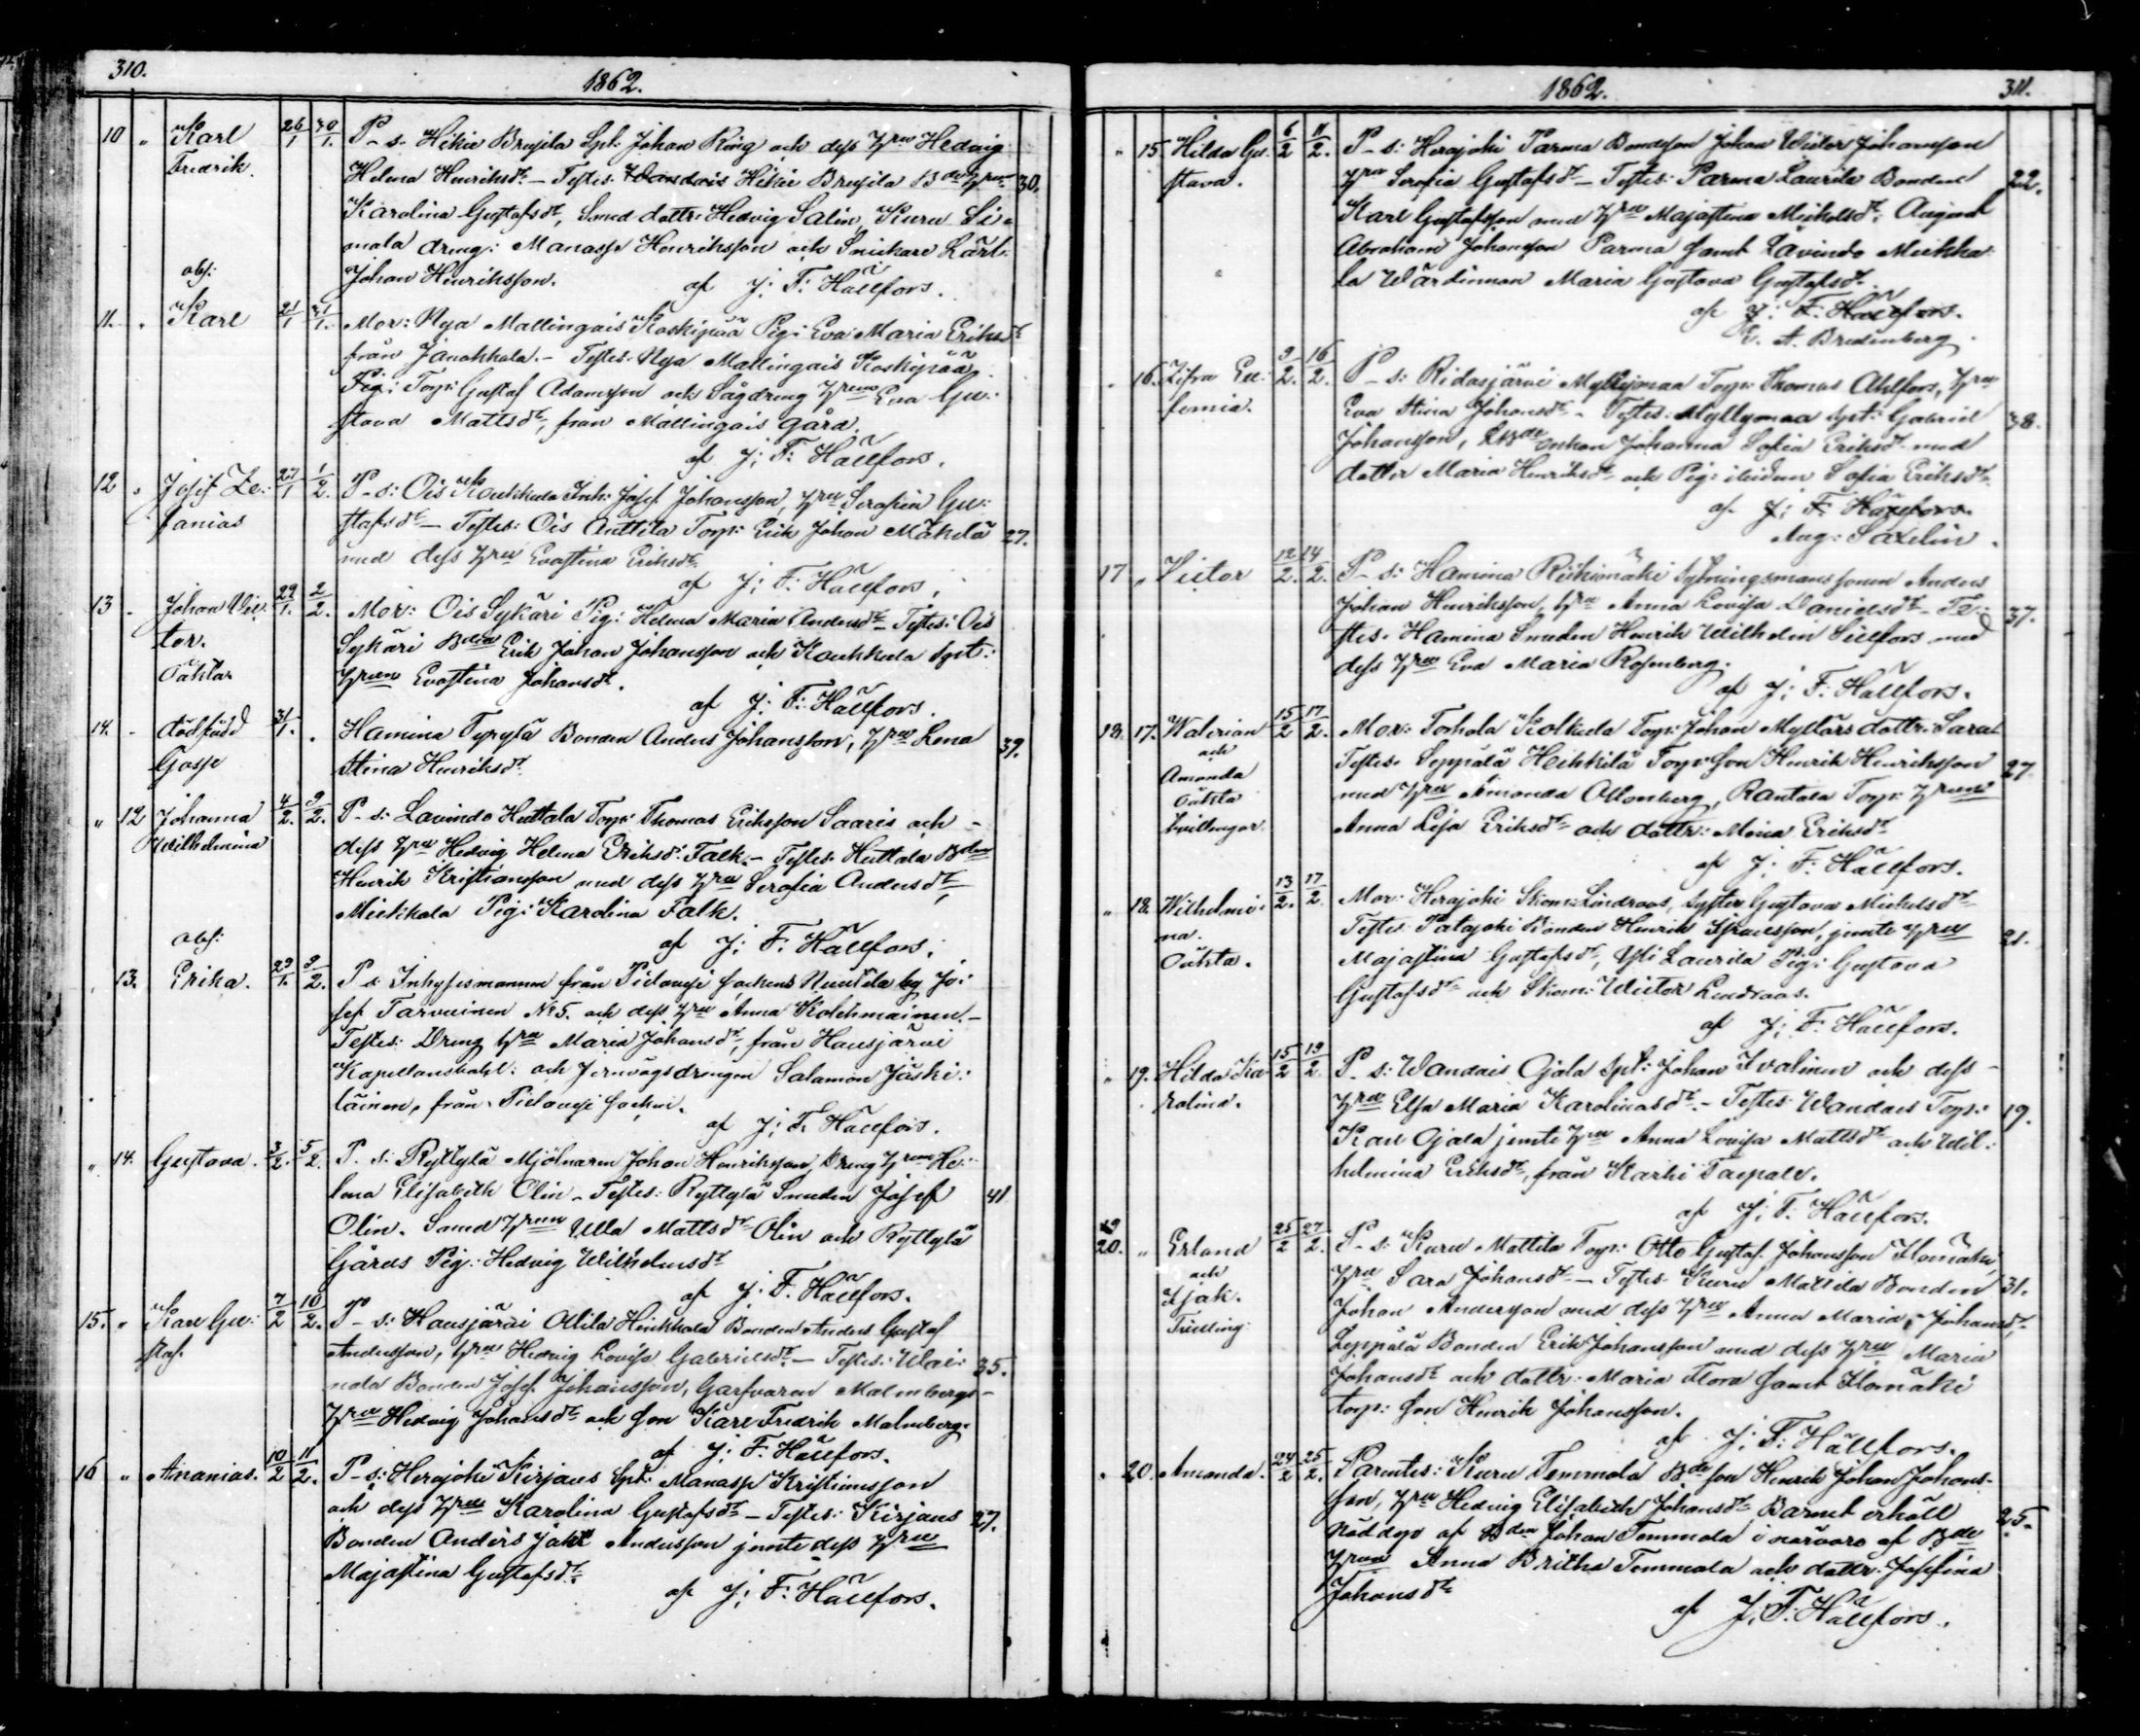 310.
1862.
10 " Karl 26/1 30/1. P-s. Hikiä Brusila Spt: Johan Ring och dess Hru Hedvig
Fredrik. Helena Henriksdr. - Testes. Hikiä Brusila Bde Hru 30.
Karolina Gustafsdr, Smed dottr. Hedvig Salin, Kuru Si-
mola dreng: Manasse Henriksson och Snickare Lärl:
Johan Henriksson.
af J: F: Hällfors.
obs:
11. " Karl 21/1 31/1. Mor: Nya Mallingais Koskipää Pig: Eva Maria Eriksdr
från Janakkala. - Testes. Nya Mallingais Koskipää
Torp: Gustaf Adamsson och Sågdreng Hrun Eva Gu-
stava Mattsdr, från Mallingais gård.
af J: F: Hällfors.
12 " Josef Ze- 27/1 1/2. P-s: Ois Koukkula Inh: Josef Johansson, Hru Serafia Gu-
fanias stafsdr - Testes: Ois Anttila Torp: Erik Johan Mäkelä 27.
med dess Hru Evastina Eriksdr.
af J: F: Hällfors.
13 " Johan Vic- 29/1. 2/2. Mor: Ois Sykäri Pig: Helena Maria Andersdr Testes: Ois
tor. Sykäri Bden Erik Johan Johansson och Koukkula Spt:
Oäkta Hrun Evastina Johansdr.
af J: F: Hällfors.
14. " dödfödd 31/1. " Hamina Typylä Bonden Anders Johansson, Hru Lena 39.
Gosse Stina Henriksdr
" 12 Johanna 4/2. 9/2. P-s: Lavindo Huttala Torp: Thomas Eriksson Saaris och
Wilhelmina dess Hru Hedvig Helena Eriksdr Falk. - Testes. Huttala Bden
Henrik Kristiansson med dess Hru Serafia Andersdr,
Mickkala Pig: Karolina Falk.
af J: F: Hällfors.
obs:
" 13. Erika. 29/1. 9/2. P-s. Inhysesmannen från Pielavesi sockens by Jo-
sef Tarvainen No 5. och dess Hru Anna Kolehmainen. -
Testes: Dreng Hru Maria Johansdr, från Hausjärvi
Kapellansbohl: och Jernvägsdrengen Salamon Jäski-
läinen, från Pielavesi socken.
af J: F: Hällfors.
" 14. Gustava. 3/2. 5/2. P. s: Ryttylä Mjölnaren Johan Henriksson, Hrun He-
lena Elisabeth Olin - Testes: Ryttylä Smeden Josef 41
Olin. Smed Hrun Ulla Mattsdr Olin och Ryttylä
Gårds Pig: Hedvig Wilhelmsdr
af J: F: Hällfors.
15. " Karl Gu- 7/2 10/2. P-s: Hausjärvi Ollila Heikkala Bonden Anders Gustaf
staf. Andersson, Hru Hedvig Lovisa Gabrielsdr. - Testes: 35.
Bonden Josef Johansson, Garfvaren Malmbergs
Hru Hedvig Johansdr och son Karl Fredrik Malmberg.
af J: F: Hällfors.
16 " Ananias. 10/2 11/2. P-s: Herajoki Kirjais Spt: Manasse Kristiansson
och dess Hru Karolina Gustafsdr - Testes: Kirjais 27.
Bonden Anders Jakt Andersson jemte dess Hru
Majastina Gustafsdr.
af J: F: Hällfors.
1862.
311.
" 15 Hilda Gu- 6/2 11/2. P-s: Herajoki Parma Bondeson Johan Wictor Johansson
stava. Hru Serafia Gustafsdr - Testes: Parma Laurila Bonden 22.
Karl Gustafsson med Hru Majastina Mickelsdr, August
Abraham Johansson Parma samt Lavindo Mickka-
la Wärdinnan Maria Gustava Gustafsdr.
af J: F: Hällfors.
E. A. Bredenberg.
" 16. Zifra Eu- 9/2. 16/2. P-s: Ridasjärvi Myllymaa Torp: Thomas Ahlfors, Hru
femia. Eva Stina Johansdr - Testes: Myllymaa Spt: Gabriel 38.
Johansson, Enkan Johanna Sofia Eriksdr med
dotter Maria Henriksdr och Pig: ibidem Sofia Eriksdr
af J: F: Hällfors.
Aug: Saxelin.
17 " Victor 12/2. 14/2. P-s: Hamina Riihimäki Sytningsmanssonen Anders
Johan Henriksson, Hru Anna Lovisa Danielsdr - Te- 37.
stes. Hamina Smeden Henrik Wilhelm Sillfors med
dess Hru Eva Maria Rosenberg.
af J: F: Hällfors.
18. 17. Walerian 15/2 17/2. Mor: Torhola Kolkula Torp: Johan Myllärs dottr. Sara
och Testes. Seppälä Heikkilä Torp: son Henrik Henriksson 27
Amanda med Hru Amanda Ollonberg, Rantala Torp: Hrun
Oäkta Anna Lisa Eriksdr och dottr: Mina Eriksdr
tvillingar. af J: F: Hällfors.
" 18. Wilhelmi- 13/2. 17/2. Mor: Herajoki Skom: Lindroos, Syster Gustava Mickelsdr
na. Testes Patajoki Bonden Henrik Israelsson, jemte Hru 21.
Oäkta. Majastina Gustafsdr, Yli Laurila Pig: Gustava
Gustafsdr och Skom: Wictor Lindroos.
af J: F: Hällfors.
" 19. Hilda Ka- 15/2 19/2 P-s: Wandais Ojala Spt: Johan Iivalinen och dess
rolina. Hru Elsa Maria Karolinasdr. - Testes Wandais Torp: 19.
Karl Ojala jemte Hru Anna Lovisa Mattsdr och Wil-
helmina Eriksdr, från Karhi Taipale.
af J: F: Hällfors.
19
20. " Erland 25/2 27/2. P-s: Kuru Mattila Torp: Otto Gustaf Johansson Ilomäki,
och Hru Sara Johansdr - Testes. Kuru Mattila Bonden 31.
Isak. Johan Andersson med dess Hru Anna Maria Johansdr,
Tvilling: Leppälä Bonden Erik Johansson med dess Hru Maria
Johansdr och dottr: Maria Flora samt Ilomäki
torp: son Henrik Johansson.
af J: F: Hällfors.
" 20. Amanda. 24/2 25/2. Parentes: Kuru Temmola Bde son Henrik Johan Johans-
son, Hru Hedvig Elisabeth Johansdr. Barnet erhöll 25.
Nöddop af Bden Johan Temmola i närvaro af Bde
Hrun Anna Britha Temmola och dottr. Josefina
Johansdr
af J: F: Hällfors.